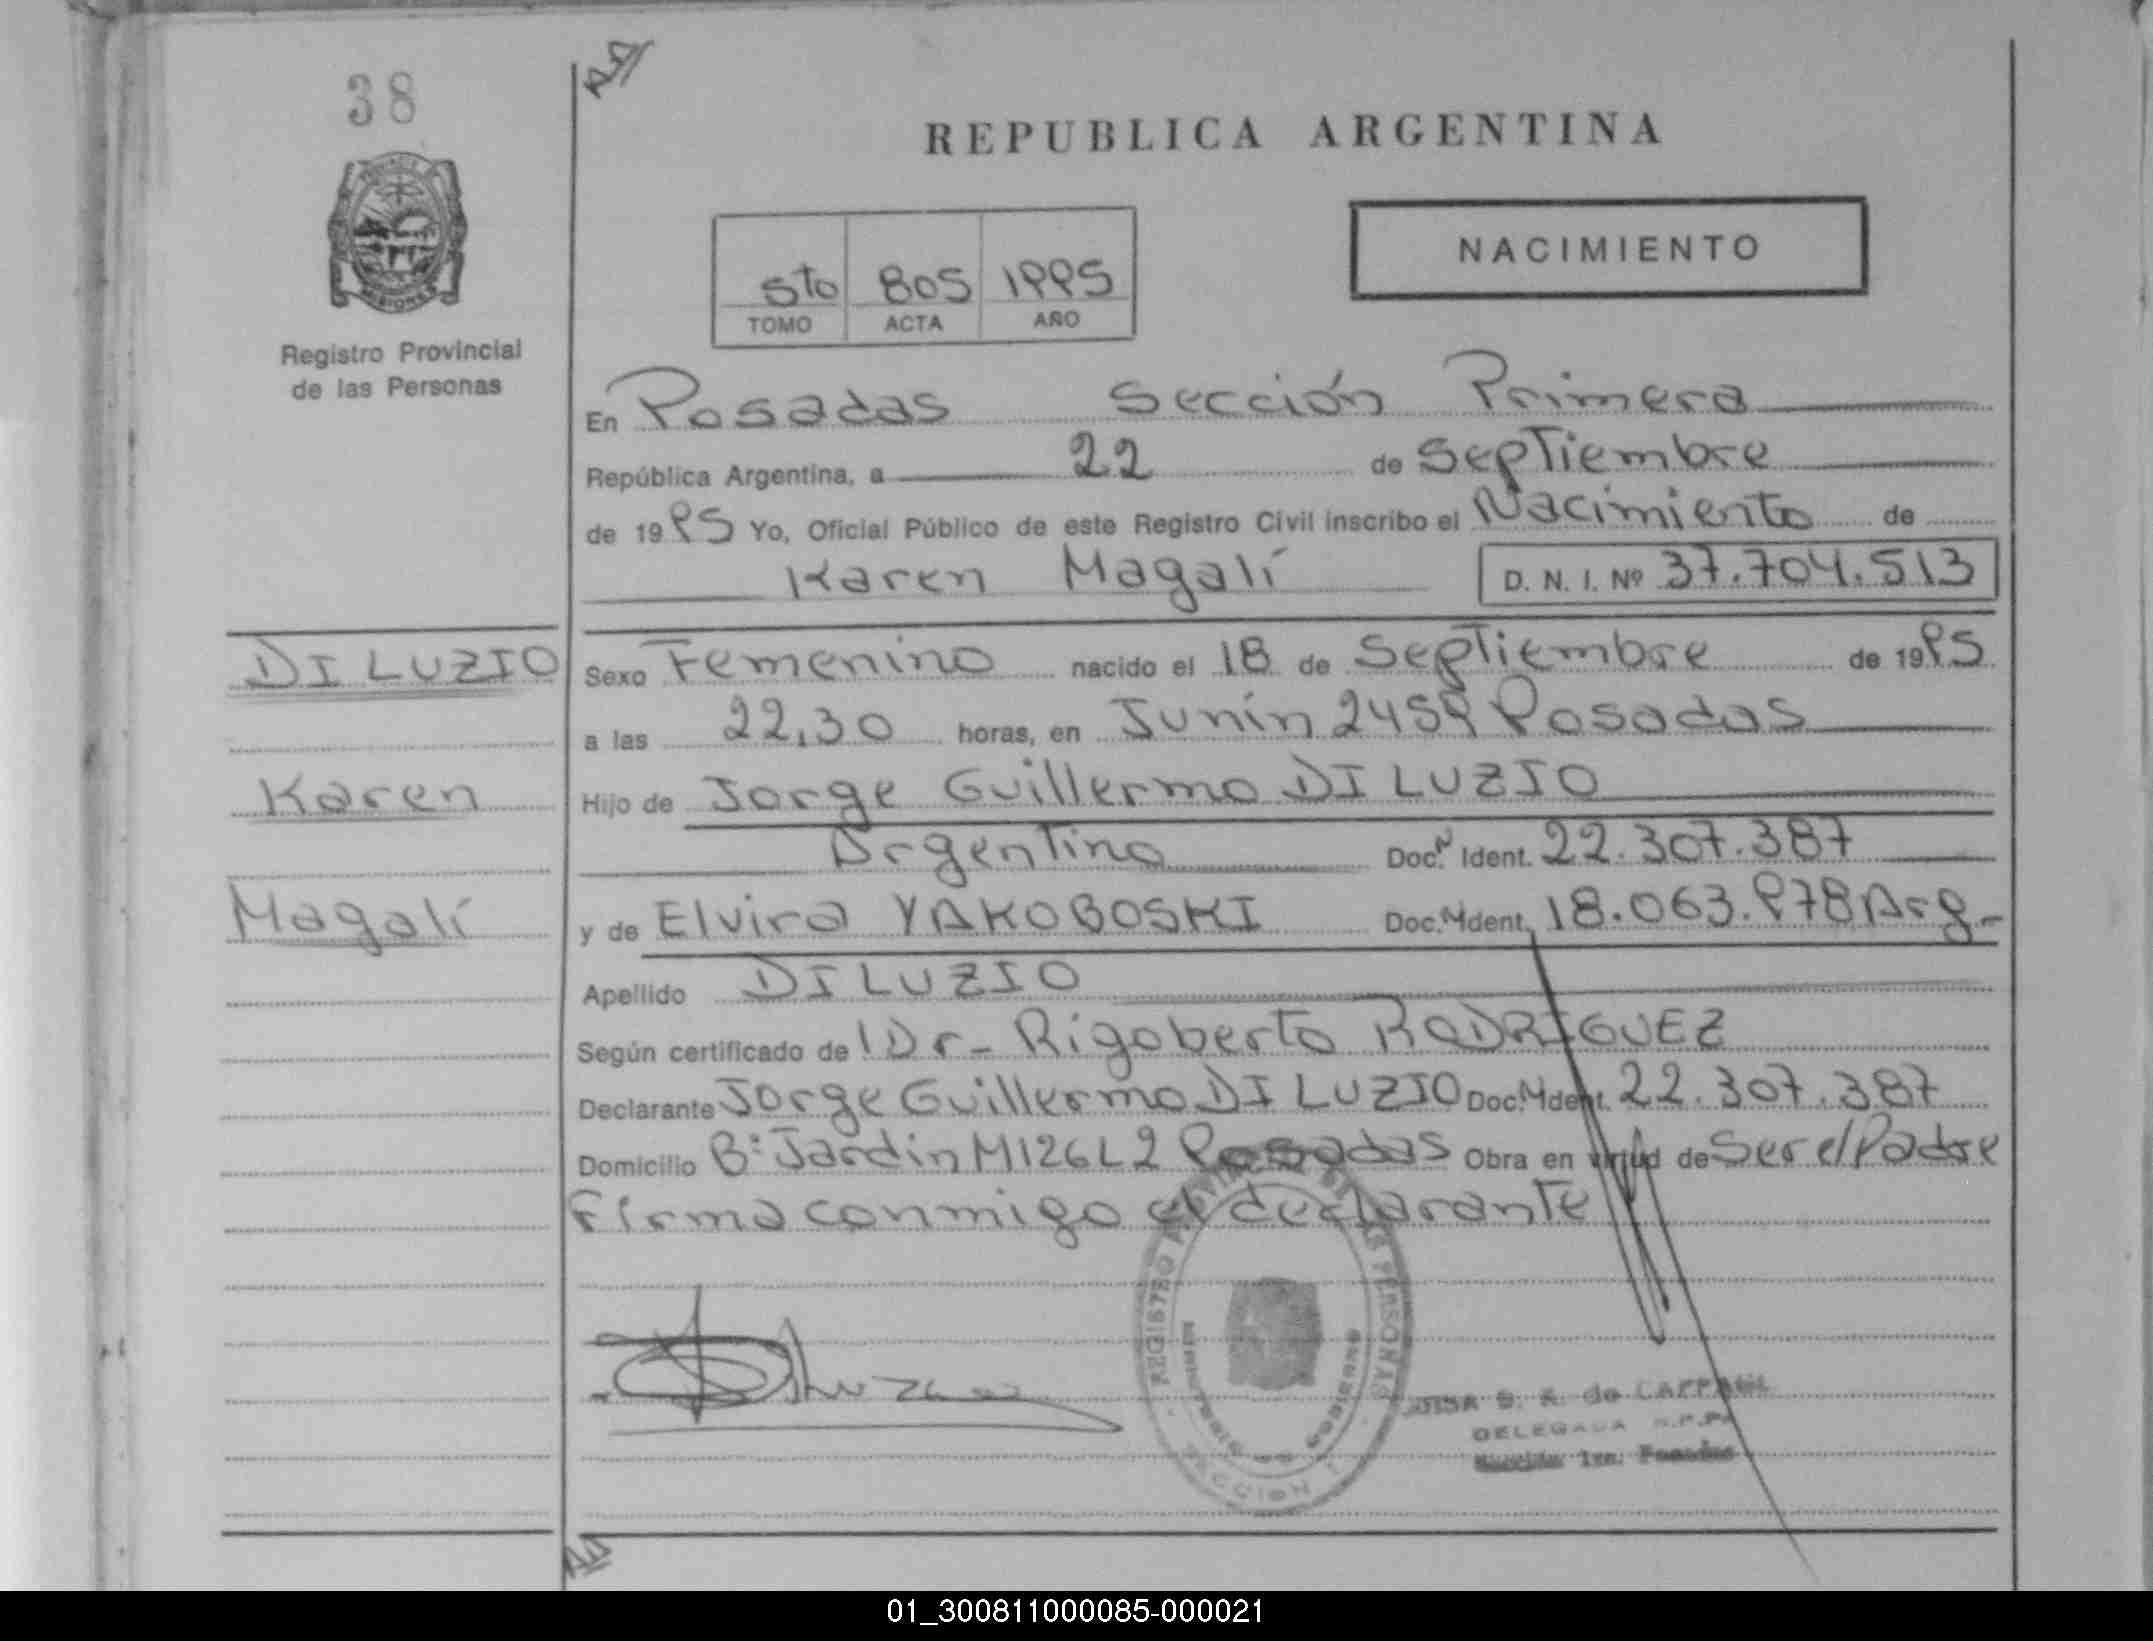 38
REPUBLICA ARGENTINA
NACIMIENTO
5to 805 1995
TOMO ACTA AÑO
MISIONES
Registro Provincial
de las Personas
En Posadas Sección Primera
República Argentina, a 22 de Septiembre
de 1995 Yo, Oficial Público de este Registro Civil inscribo el Nacimiento de
Karen Magalí D. N. I. Nº 37.704.513
DI LUZIO
Karen
Magalí
Sexo Femenino nacido el 18 de Septiembre de 1995
a las 22,30 horas, en Junín 2459 Posadas
Hijo de Jorge Guillermo DI LUZIO
Argentino Doc.N Ident. 22.307.387
y de Elvira YAKOBOSKI Doc.N Ident. 18.063.978 Arg.-
Apellido DI LUZIO
Según certificado del Dr- Rigoberto RODRIGUEZ
Declarante Jorge Guillermo DI LUZIO Doc.N Ident. 22.307.387
Domicilio Bº Jardín M126 L2 Posadas Obra en virtud de Ser el Padre
Firma conmigo el declarante
REGISTRO PROVINCIAL DE LAS PERSONAS
MINISTERIO DE GOBIERNO
SECCION 1
DELEGADA R.P.P.
Sección 1ra. Posadas
01_300811000085-000021